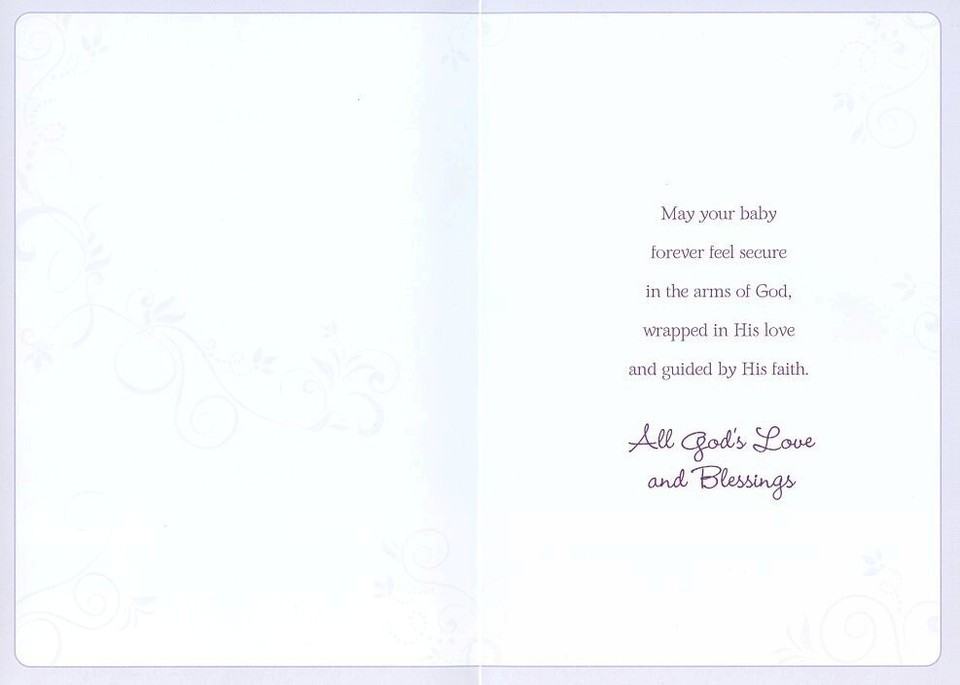 May your baby
forever feel secure
in the arms of God,
wrapped in His love
and guided by His faith.
All God's Love
and Blessings